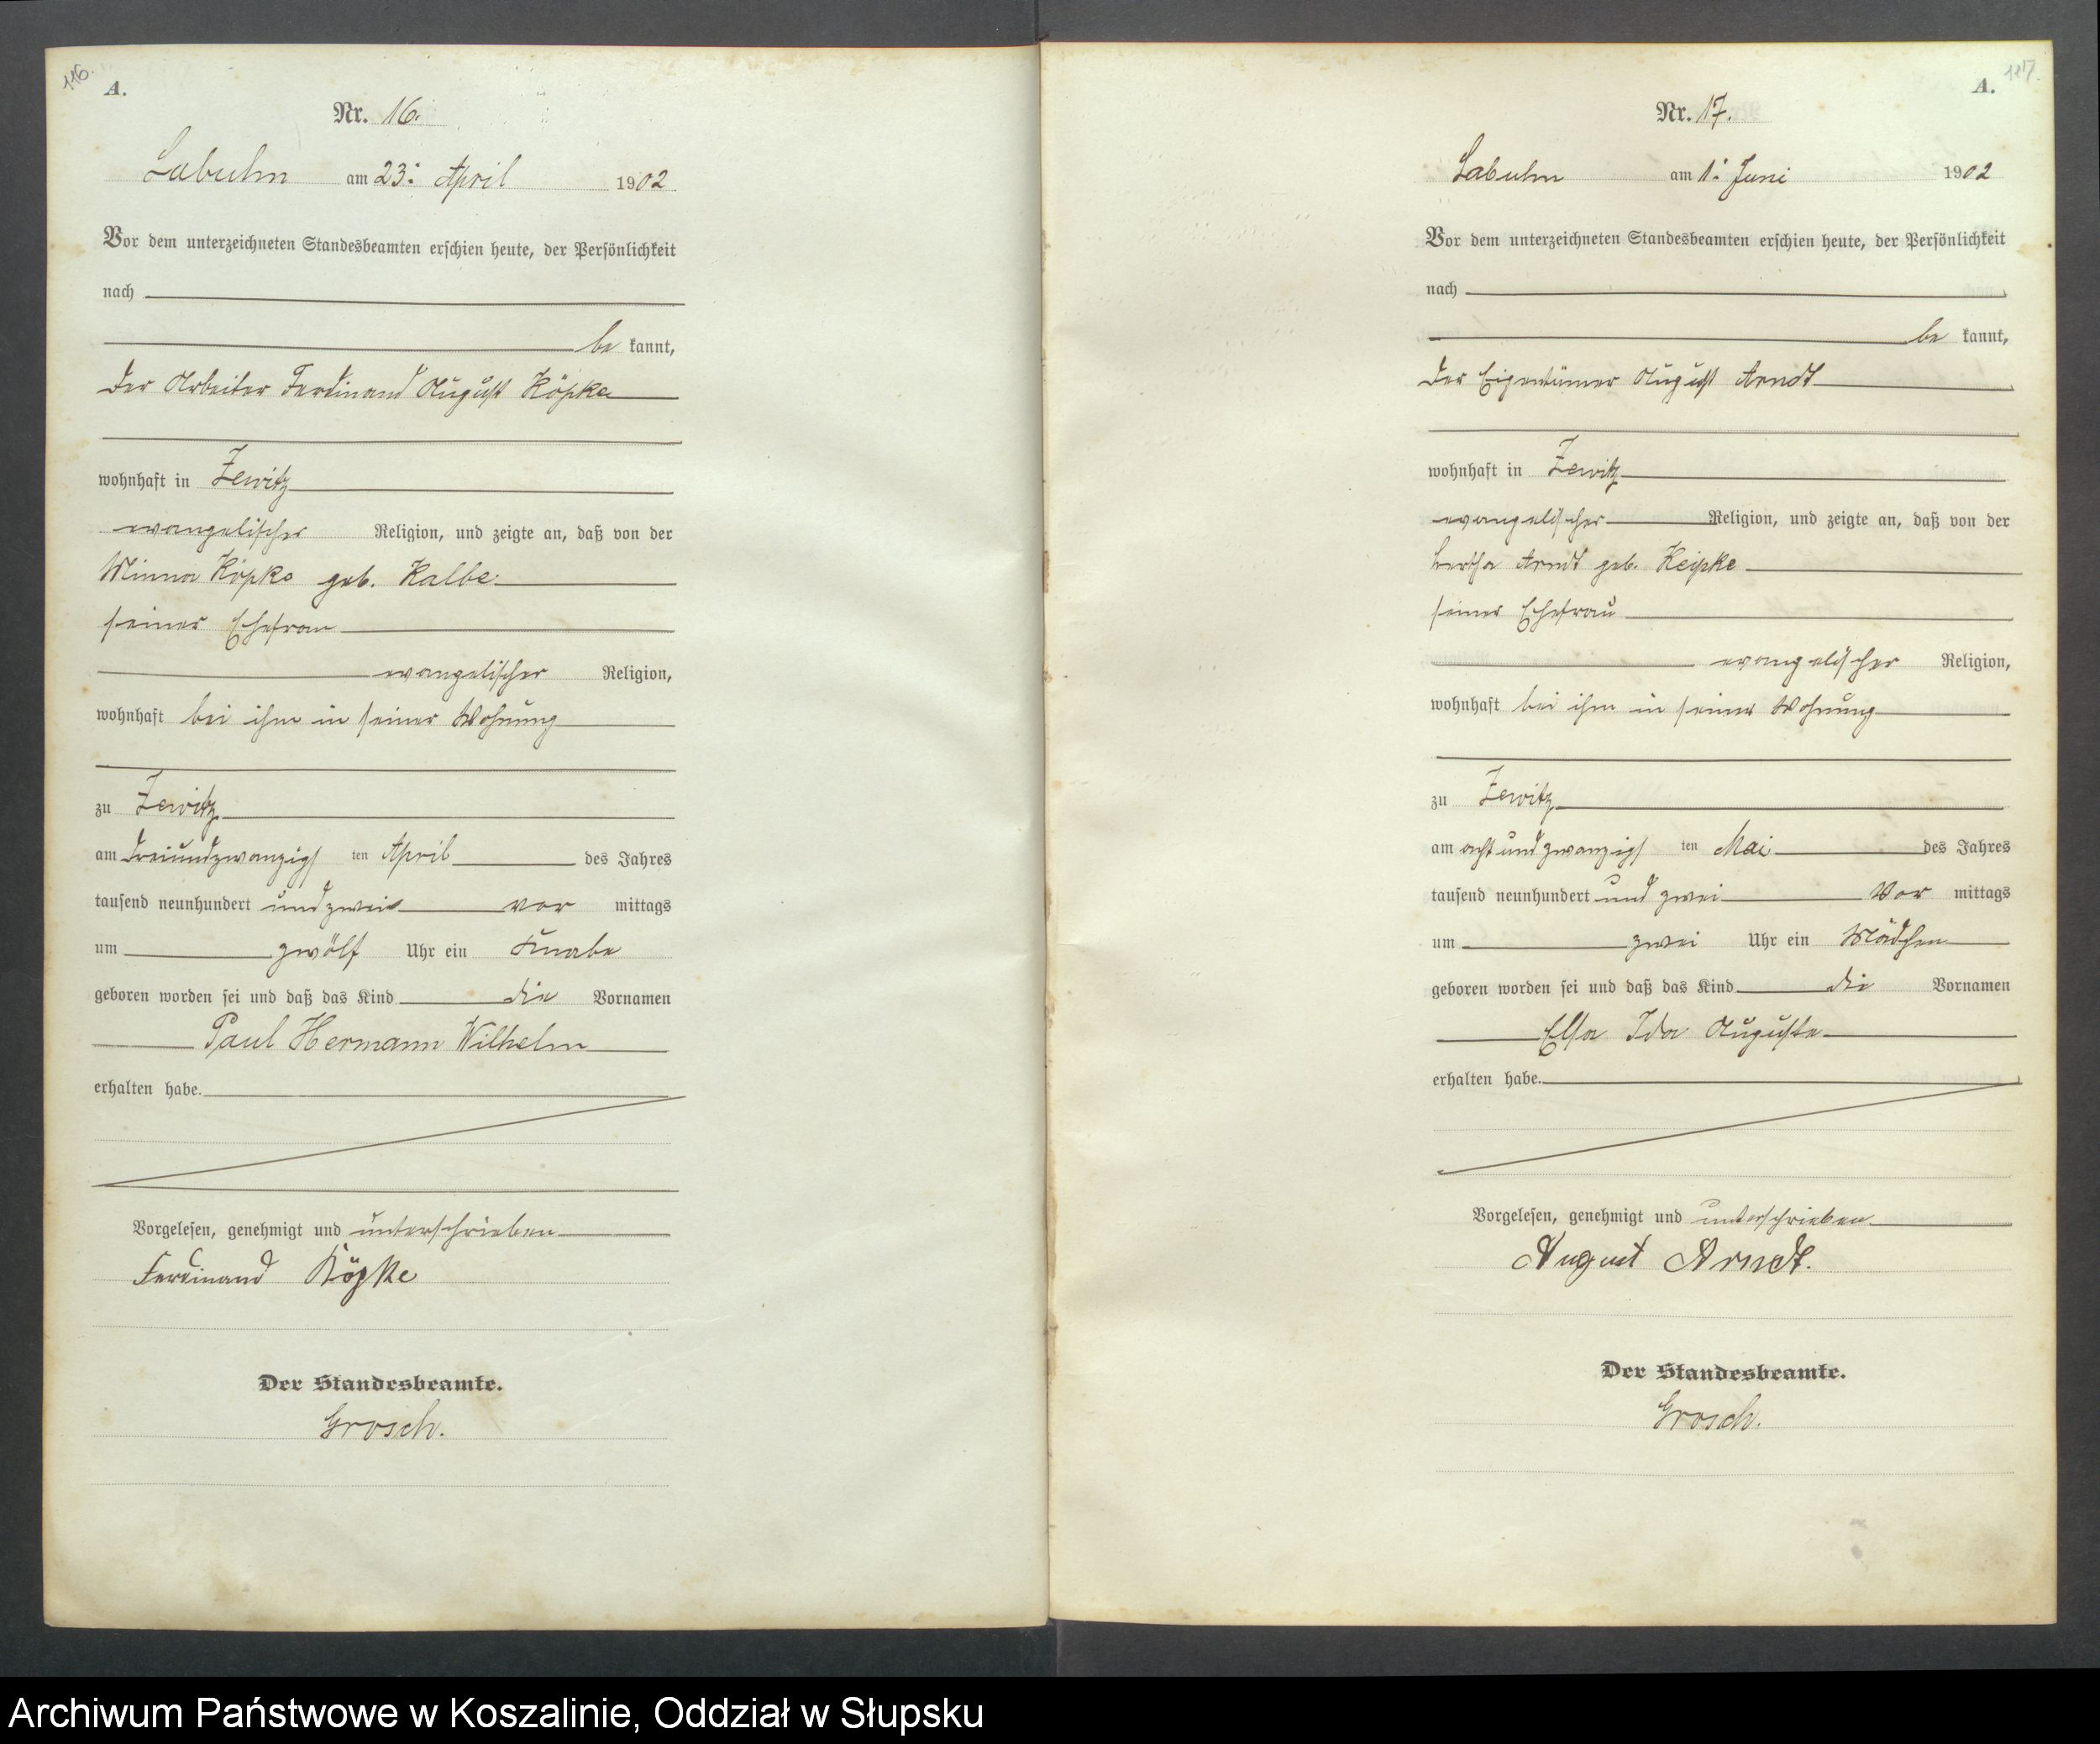 116.
A.
Nr. 16.
Labuhn am 23. April 1902
Vor dem unterzeichneten Standesbeamten erschien heute, der Persönlichkeit
nach
be kannt,
der Arbeiter Ferdinand August Köpke
wohnhaft in Zewitz
evangelischer Religion, und zeigte an, daß von der
Minna Köpke geb. Kalbe
seiner Ehefrau
evangelischer Religion,
wohnhaft bei ihm in seiner Wohnung
zu Zewitz
am dreiundzwanzigs ten April des Jahres
tausend neunhundert und zwei vor mittags
um zwölf Uhr ein Knabe
geboren worden sei und daß das Kind die Vornamen
Paul Hermann Wilhelm
erhalten habe.
Vorgelesen, genehmigt und unterschrieben
Ferdinand Köpke
Der Standesbeamte.
Grosch.
117.
A.
Nr. 17.
Labuhn am 1. Juni 1902
Vor dem unterzeichneten Standesbeamten erschien heute, der Persönlichkeit
nach
be kannt,
der Eigentümer August Arndt
wohnhaft in Zewitz
evangelischer Religion, und zeigte an, daß von der
Bertha Arndt geb. Keipke
seiner Ehefrau
evangelischer Religion,
wohnhaft bei ihm in seiner Wohnung
zu Zewitz
am acht und zwanzigs ten Mai des Jahres
tausend neunhundert und zwei Vor mittags
um zwei Uhr ein Mädchen
geboren worden sei und daß das Kind die Vornamen
Elsa Ida Auguste
erhalten habe.
Vorgelesen, genehmigt und unterschrieben
August Arndt.
Der Standesbeamte.
Grosch.
Archiwum Państwowe w Koszalinie, Oddział w Słupsku